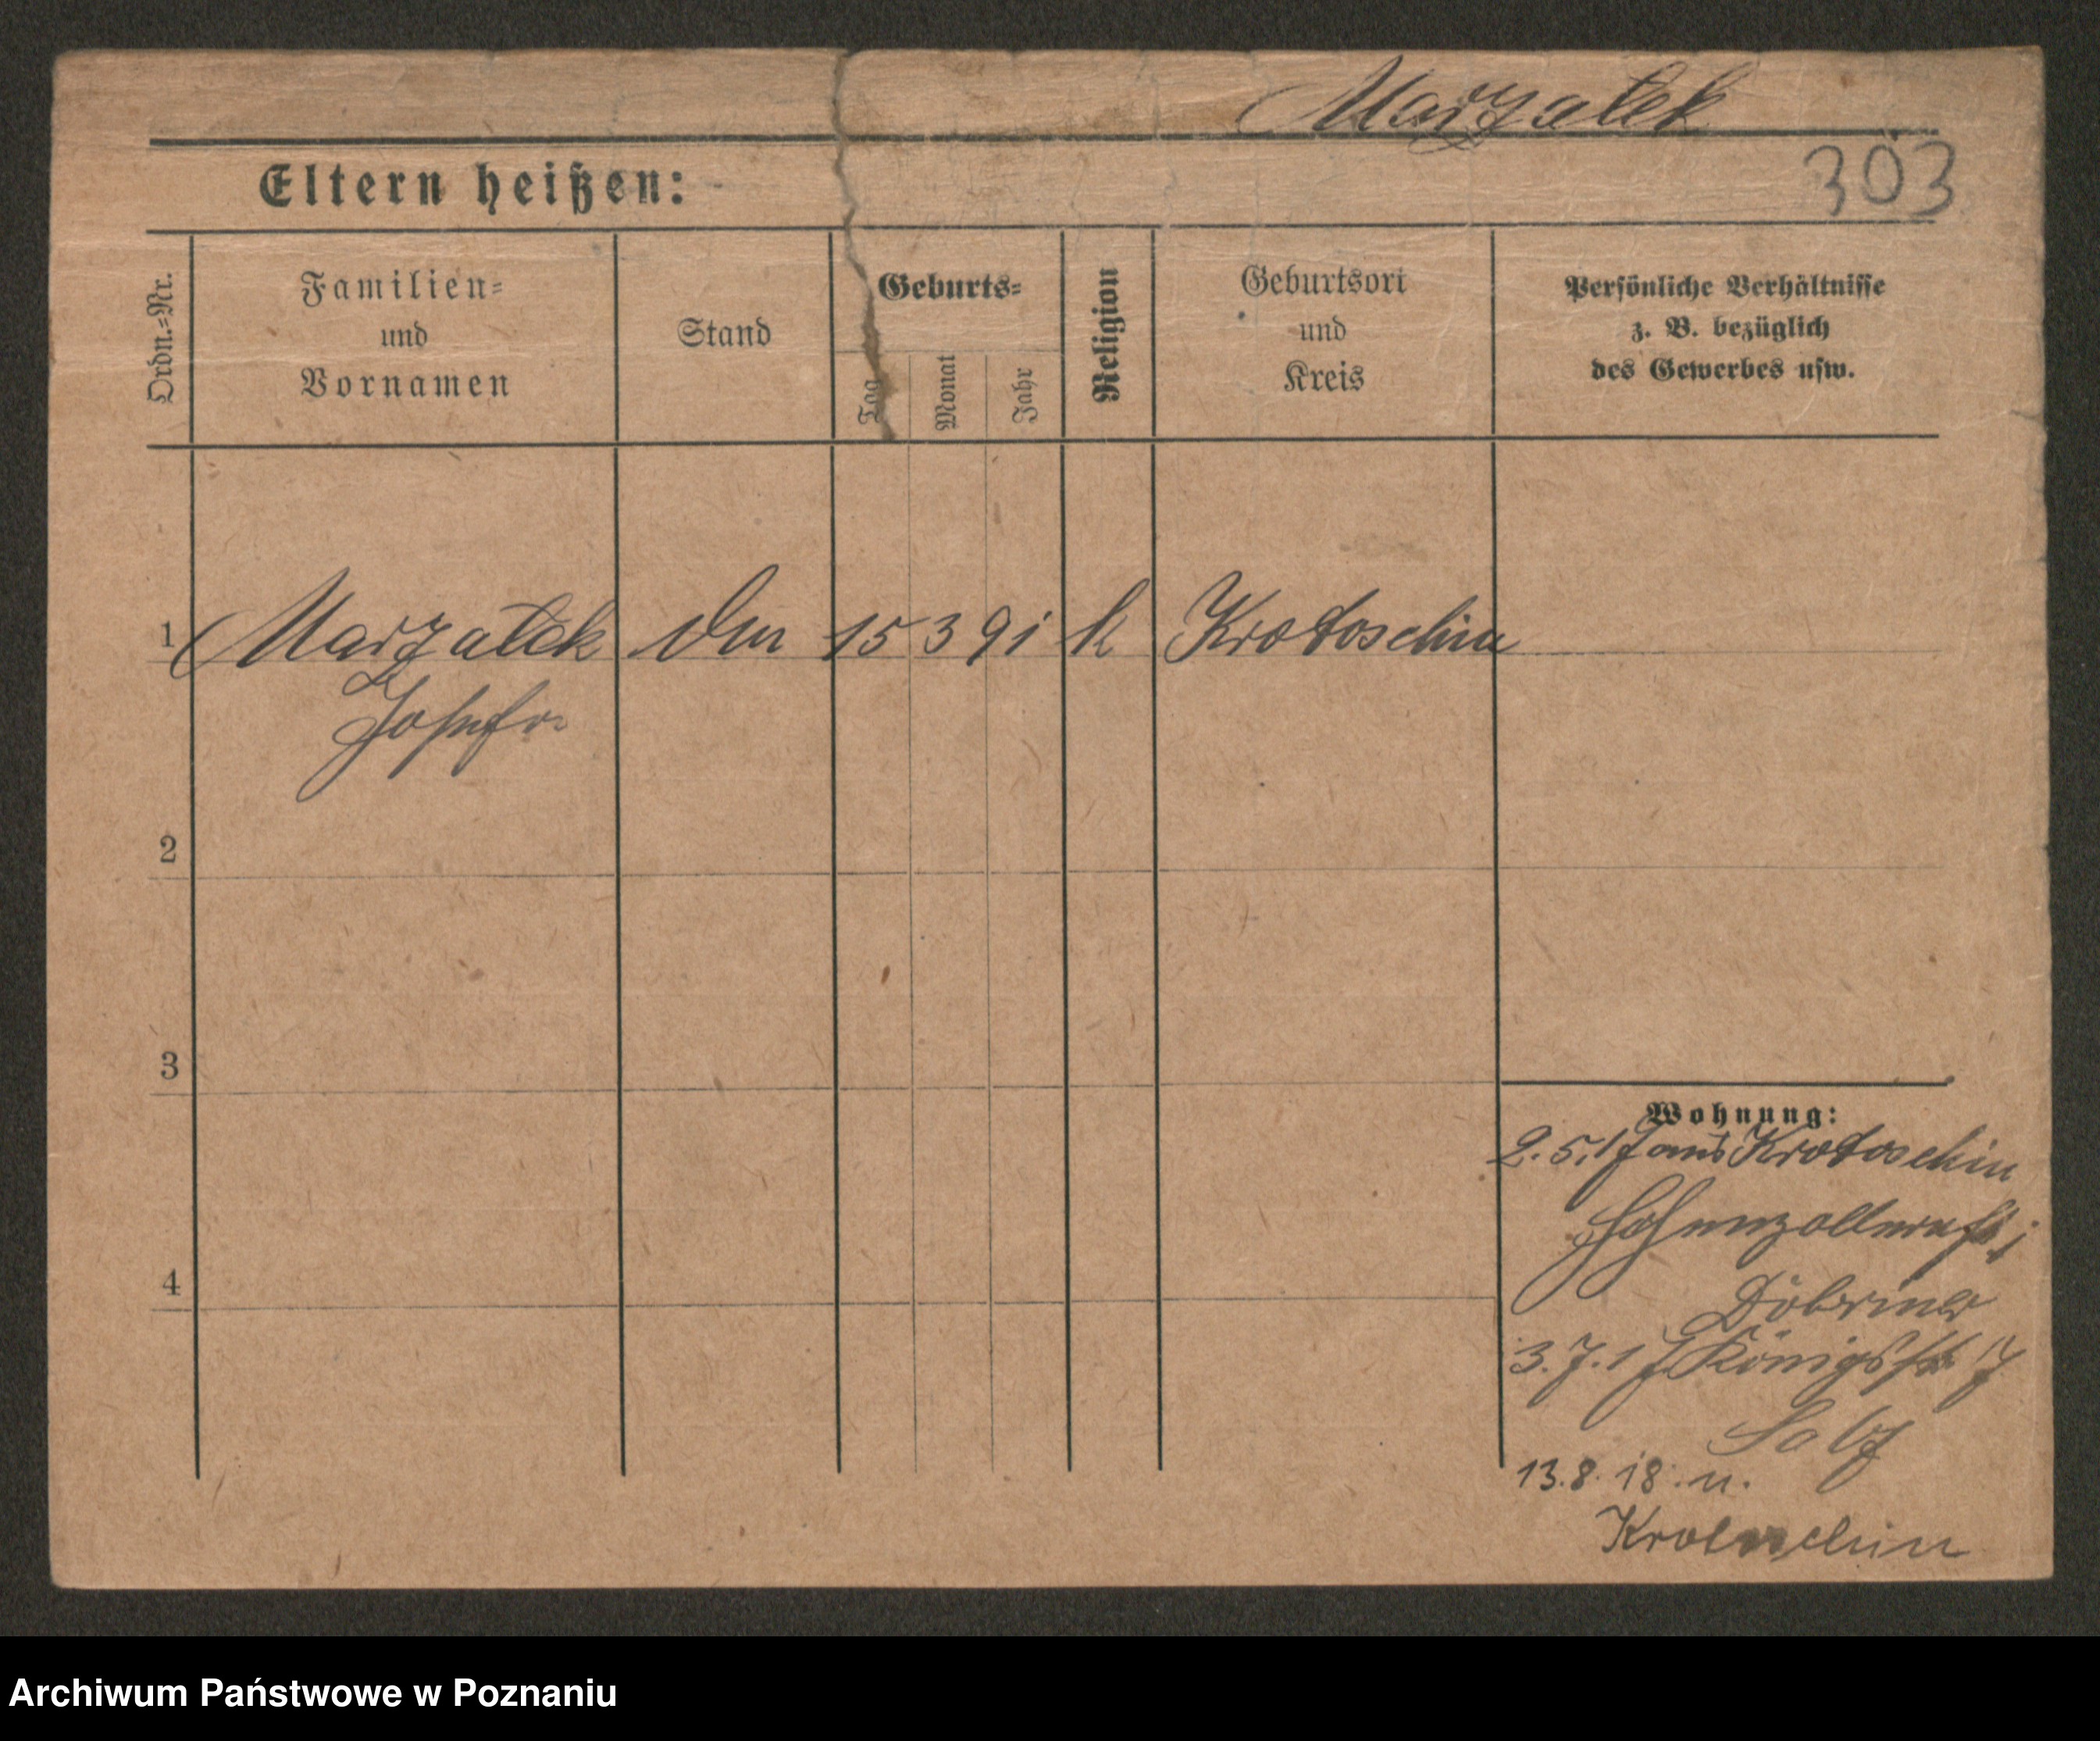 Marzałek
303
Eltern heißen:
Ordn.=Nr.
Familien=
und
Vornamen
Stand
Geburts=
Tag
Monat
Jahr
Religion
Geburtsort
und
Kreis
Persönliche Verhältnisse
z. B. bezüglich
des Gewerbes usw.
1 Marzałek 15 3 91 k Krotoschin
Josefa
2
3
4
Wohnung:
2.5.17 aus Krotoschin
Hohenzollernstr
3.7.17 Königsstr 7
13.8.18. n.
Krotoschin
Archiwum Państwowe w Poznaniu